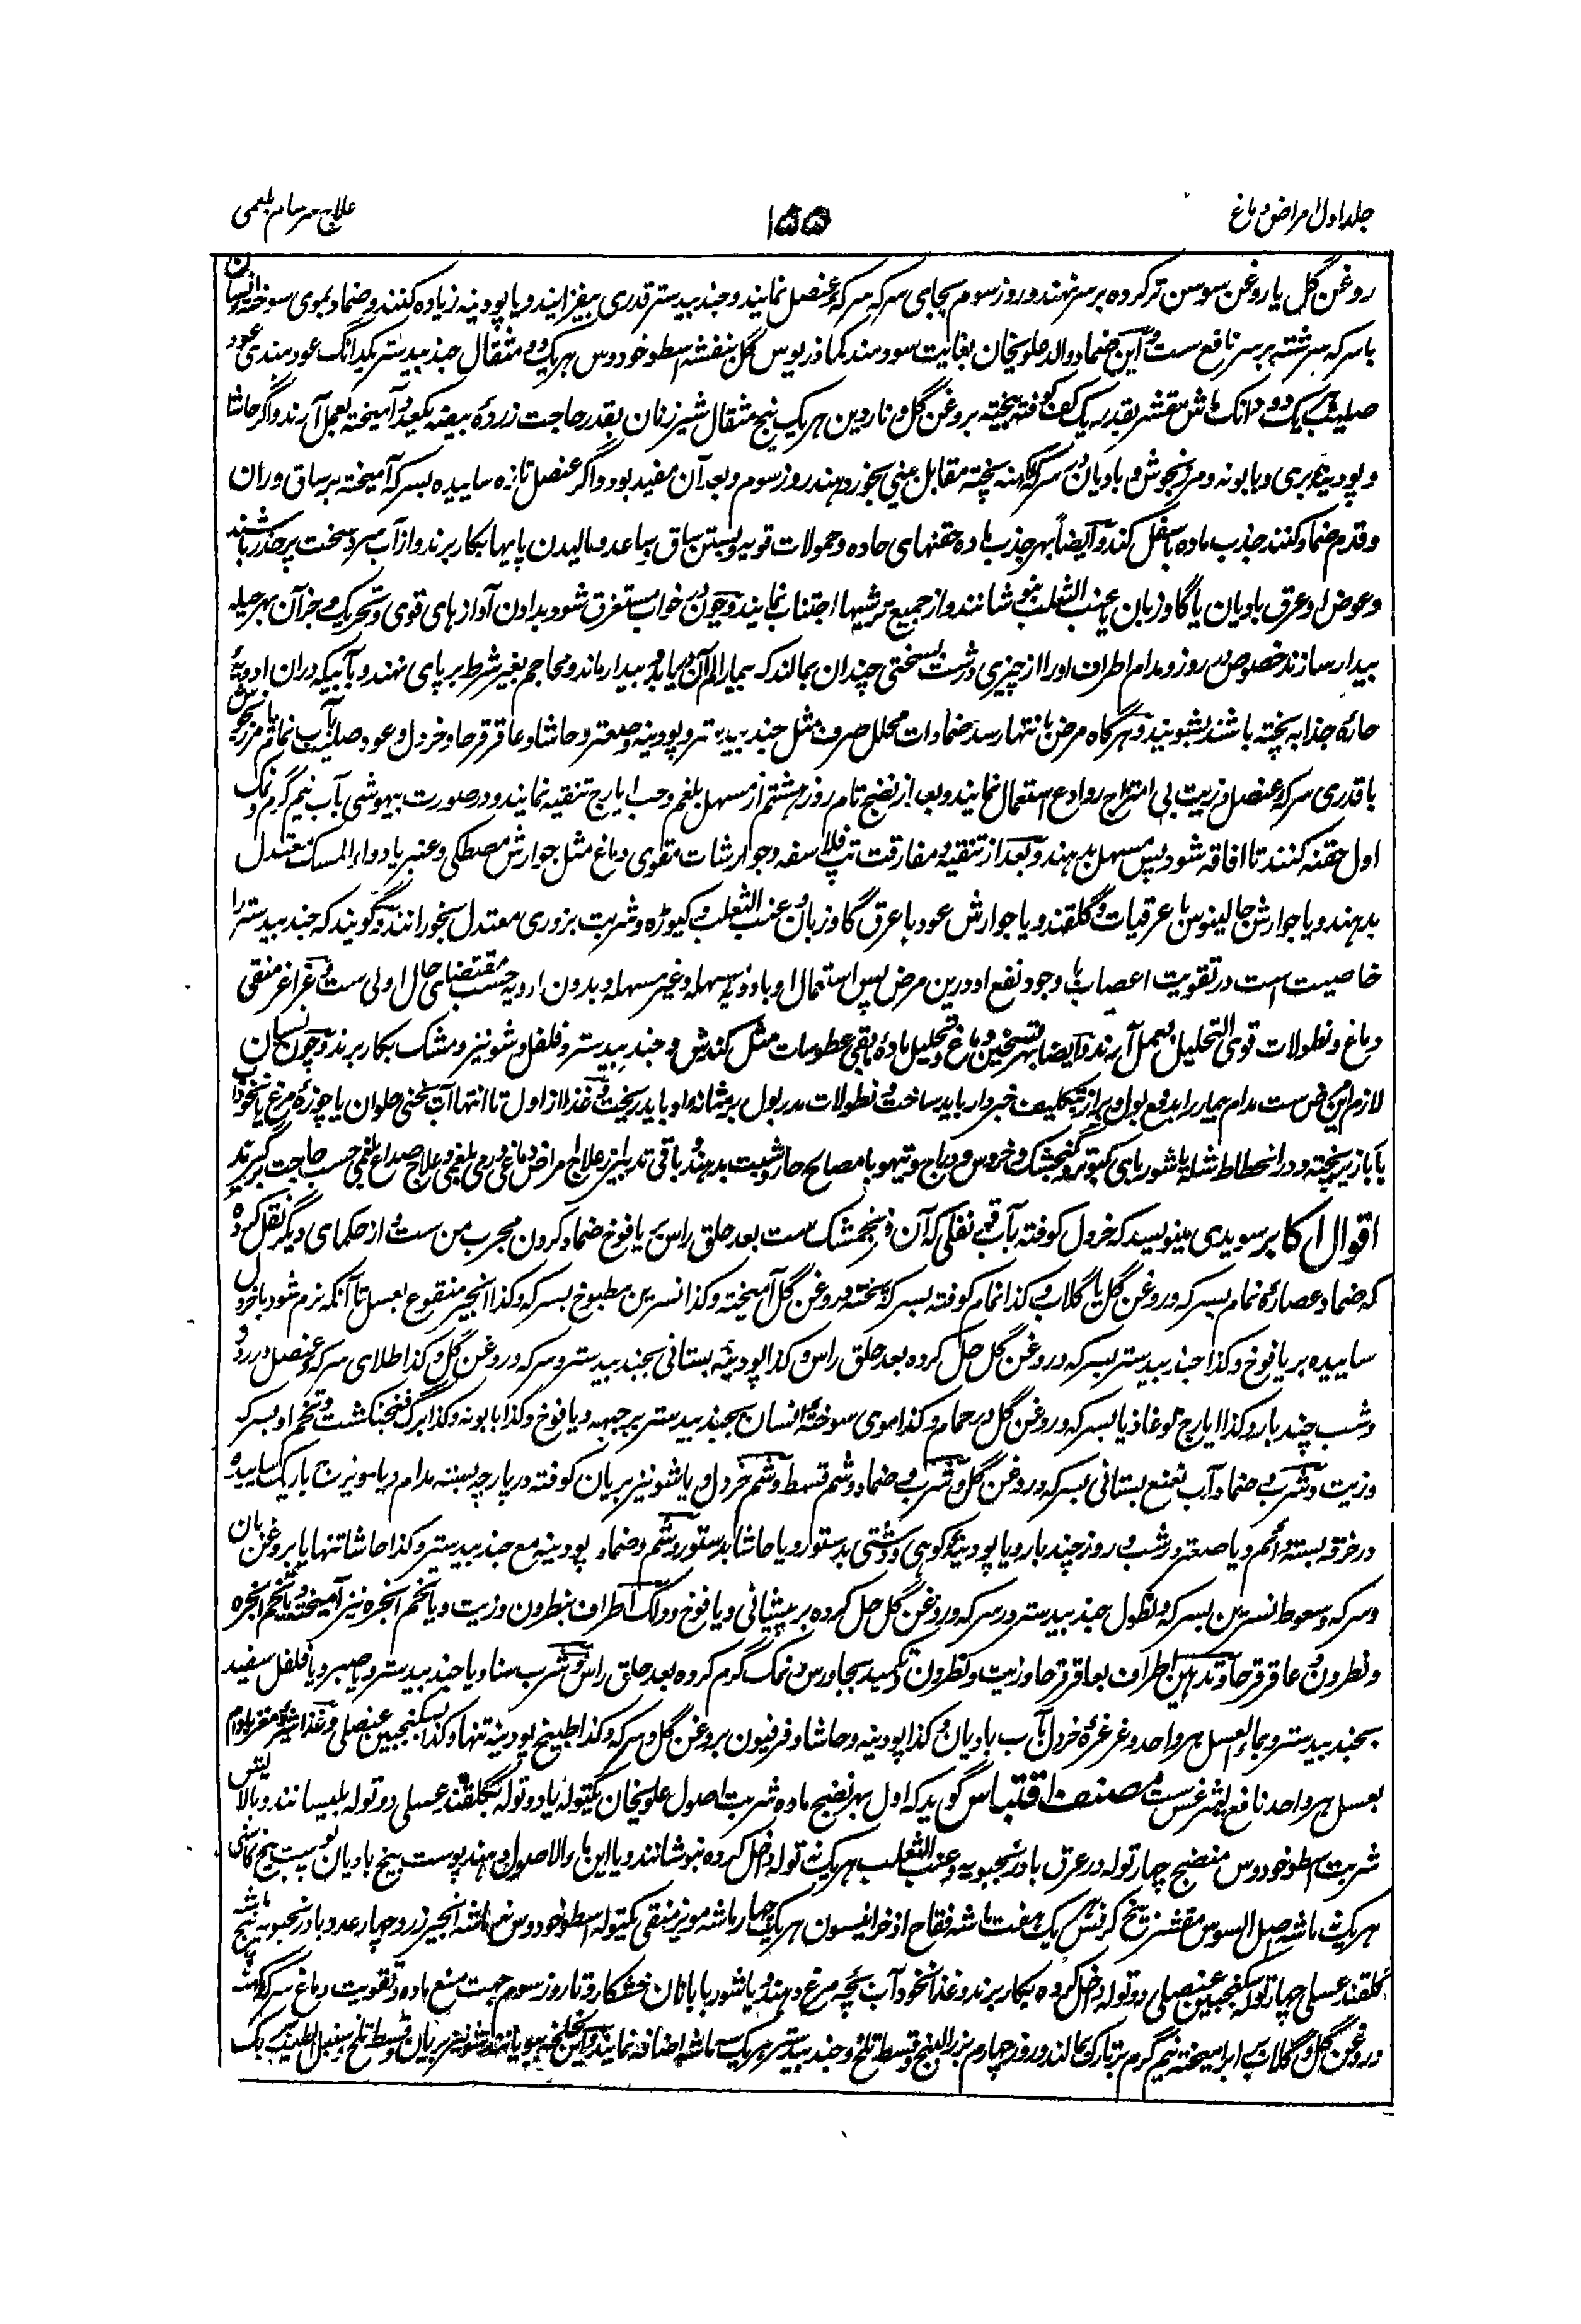 جلد اول امراض دماغ
۱۵۵
علاج سرسام بلغمی
روغن گل یا روغن سوسن تر کرده بر سر نهند و روز سوم بجای سرکه سرکهٔ عنصل نمایند و جندبیدستر قدری بیفزایند و یا پودینه زیاده کنند و ضماد بموی سوخته انسان
با سرکه سرشته بر سر نافع ست و این ضماد والد علویخان بغایت سودمند کماذریوس گل بنفشه اسطوخودوس هر یک دو مثقال جندبیدستر یکدانگ عود هندی عود
صلیب هر یک دو دانگ ماش مقشر بقدر یک کف کوفته بیخته بروغن گل و ناردین هر یک پنج مثقال شیر زنان بقدر حاجت زردهٔ بیضه یکعدد آمیخته بعمل آرند و اگر حاشا
و پودینهٔ بری و بابونه و مرزنجوش و بادیان در سرکهٔ کهنه پخته مقابل بینی بخور دهند روز سوم و بعد آن مفید بود و اگر عنصل تازه ساییده بسرکه آمیخته بر ساق و ران
و قدم ضماد کنند جذب ماده باسفل کند و ایضاً بهر جذب ماده حقنهای حاده و حمولات قویه و بستن ساق و ساعد و مالیدن پایها بکار برند و از آب سرد سخت پر حذر باشند
و عوض او عرق بادیان یا گاوزبان یا عنب الثعلب بنوشانند و از جمیع ترشیها اجتناب نمایند و چون در خواب مستغرق شود بدادن آوازهای قوی و تحریک و جز آن بهر حیله
بیدار سازند خصوص روز و مدام اطراف او را از چیزی درشت بسختی چندان بمالند که بیمار الم آن دریابد و بیدار ماند و محاجم بغیر شرط بر پای نهند و بآبیکه دران ادویهٔ
حارهٔ جذابه پخته باشند بشویند و هرگاه مرض بانتها رسد ضمادات محلل صرف مثل جندبیدستر و پودینه و صعتر و حاشا و عاقرقرحا و خردل و عود صلیب بآب نمام مرزنجوش
با قدری سرکهٔ عنصل و زیت بی امتزاج روادع استعمال نمایند و بعد از نضج تام روز هشتم از مسهل بلغم و حب ایارج تنقیه نمایند و در صورت بیهوشی بآب نیم گرم و نمک
اول حقنه کنند تا افاقه شود پس مسهل بدهند و بعد از تنقیه و مفارقت تپ فلاسفه و جوارشات مقوی دماغ مثل جوارش مصطکی و عنبر یا دواء المسک معتدل
بدهند و یا جوارش جالینوس با عرقیات و گلقند و یا جوارش عود با عرق گاوزبان و عنب الثعلب و کیوڑه و شربت بزوری معتدل بخورانند و گویند که جندبیدستر را
خاصیت است در تقویت اعصاب با وجود نفع او درین مرض پس استعمال او با ادویهٔ مسهله و غیر مسهله و بدون ادویه حسب مقتضای حال اولی ست و غراغر منقی
دماغ و نطولات قوی التحلیل بعمل آرند و ایضاً بهر تسخین دماغ و تحلیل مادهٔ باقی عطوسات مثل کندش و جندبیدستر و فلفل و شونیز و مشک بکار برند و چون نسیان
لازم این مرض ست مدام بیمار را بدفع بول و براز تکلیف خبردار باید ساخت و نطولات مدر بول بر مثانهٔ او باید ریخت و غذا از اول تا انتها آب یخنی حلوان یا چوزهٔ مرغ با نخود
یا آب بازیر پخته و در انحطاط شله یا شوربای کبوتر و گنجشک و خروس و دراج و تیهو با مصالح حار و شبت بدهند و باقی تدبیر از علاج امراض دماغی و ورمی بلغمی و علاج صداع بلغمی حسب حاجت برگیرند
اقوال اکابر سویدی مینویسد که خردل کوفته بآب قرنفلی که آن فرنجمشک ست بعد حلق راس بر یافوخ ضماد کردن مجرب من ست و از حکمای دیگر نقل کرده
که ضماد عصارهٔ نمام بسرکه و روغن گل یا گلاب و کذا نمام کوفته بسرکه پخته و روغن گل آمیخته و کذا نسرین مطبوخ بسرکه و کذا انجیر منقوع بعسل تا آنکه نرم شود با خردل
ساییده بر یافوخ و کذا جندبیدستر بسرکه و روغن گل حل کرده بعد حلق راس و کذا پودینهٔ بستانی بجندبیدستر و سرکه و روغن گل و کذا طلای سرکهٔ عنصل در روز
و شب چند بار و کذا ایارج لوغاذیا بسرکه و روغن گل در حمام و کذا موی سوختهٔ انسان بجندبیدستر بر جبهه و یافوخ و کذا بابونه و کذا برگ فنجنکشت و تخم او بسرکه
و زیت و شرب و ضماد آب نعنع بستانی بسرکه و روغن گل و شرب و ضماد و شم قسط و شم خردل و یا شونیز بریان کوفته در پارچه بسته مدام و یا مویزج باریک ساییده
در خرقه بسته دائم و یا صعتر در شب و روز چند بار و یا پودینهٔ کوهی و دشتی بدستور و یا حاشا بدستور و شم و ضماد پودینه مع جندبیدستر و کذا حاشا تنها یا بروغن بان
و سرکه و سعوط نسرین بسرکه و نطول جندبیدستر در سرکه و روغن گل حل کرده بر پیشانی و یافوخ و دلک اطراف بنطرون و زیت و یا تخم انجره نیز آمیخته و یا تخم انجره
و نطرون و عاقرقرحا و تدهین اطراف بعاقرقرحا و زیت و نطرون و تکمید بجاورس و نمک گرم کرده بعد حلق راس و شرب سنا و یا جندبیدستر و یا صبر و یا فلفل سفید
بجندبیدستر و بماء العسل هر واحد و غرغرهٔ خردل بآب بادیان و کذا پودینه و حاشا و فرفیون بروغن گل و سرکه و کذا طبیخ پودینه تنها و کذا بسکنجبین عنصلی و غذا شیرهٔ مغز بادام
بعسل هر واحد نافع لیثرغس ست مصنف اقتباس گوید که اول بهر نضج ماده شربت اصول علویخان یکتوله یا دو توله بگلقند عسلی دو توله بلیسانند و بالایش
شربت اسطوخودوس منضج چهار توله در عرق بادرنجبویه و عنب الثعلب هر یک نه توله داخل کرده بنوشانند و یا این ماء الاصول دهند پوست بیخ بادیان پوست بیخ کاسنی
هر یک ماشه اصل السوس مقشر بیخ کرفس هر یک هفت ماشه فقاح اذخر انیسون هر یک چهار ماشه مویز منقی یکتوله اسطوخودوس ماشه انجیر زرد چهار عدد بادرنجبویه پنج ماشه
گلقند عسلی چهار توله سکنجبین عنصلی دو توله داخل کرده بکار برند و غذا نخود آب بچه مرغ دهند و یا شوربا با نان خشکار و تا روز سوم جهت منع ماده و تقویت دماغ سرکهٔ کهنه
و روغن گل و گلاب برابر آمیخته نیم گرم بر تارک مالند و روز چهارم بزر البنج و قسط تلخ و جندبیدستر هر یک سه ماشه اضافه نمایند و این لخلخه بویانند شونیز بریان و قسط تلخ و سنبل الطیب هر یک